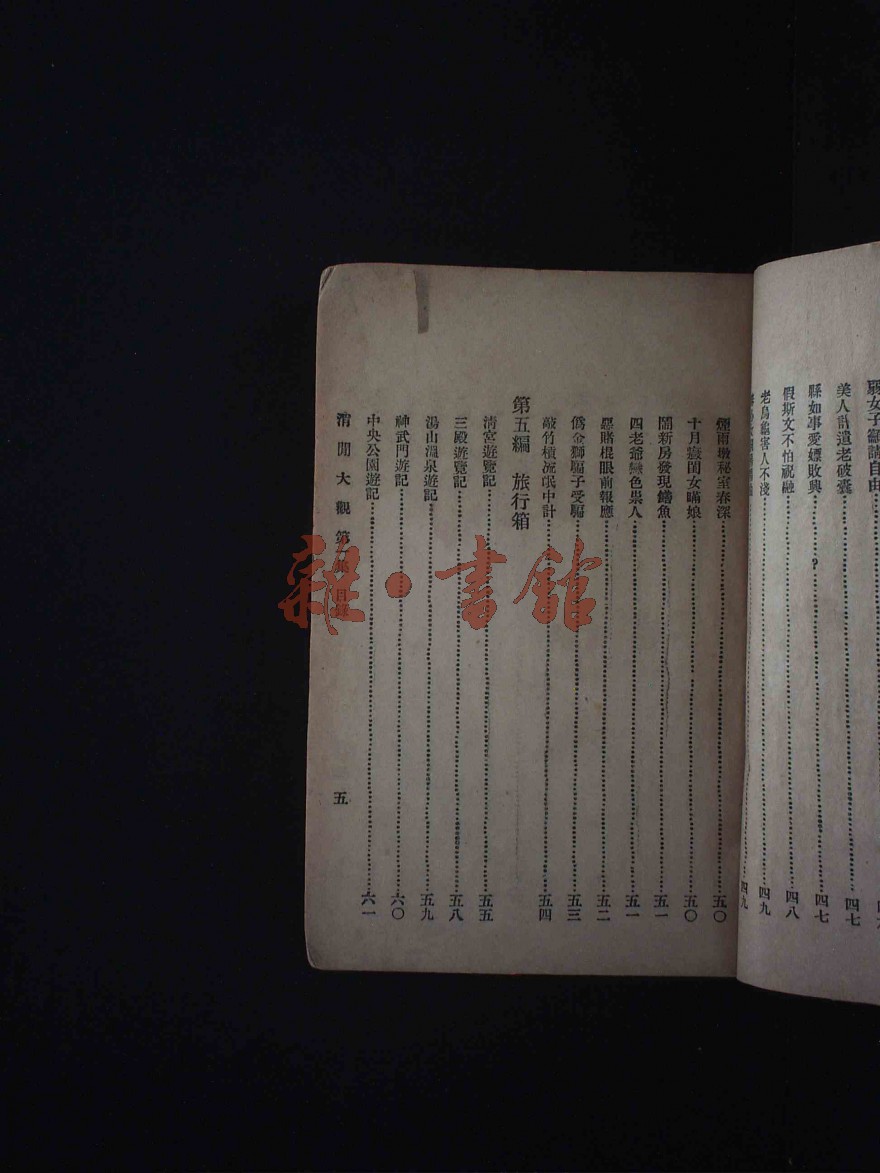 弱女子籲請自由
美人計遣老破囊……四七
縣知事愛嫖敗興……？……四七
假斯文不怕祝融……四八
老烏龜害人不淺……四九
四九
煙雨墩秘室春深……五〇
十月歲閨女瞞娘……五〇
鬧新房發現鱔魚……五一
四老爺戀色祟人……五一
賭棍眼前報應……五二
僞金獅騙子受騙……五三
敲竹槓流氓中計……五四
第五編　旅行箱
清宮遊覽記……五五
三殿遊覽記……五八
湯山溫泉遊記……五九
神武門遊記……六〇
中央公園遊記……六一
消閒大觀 第一集 目錄　五
雜·書館